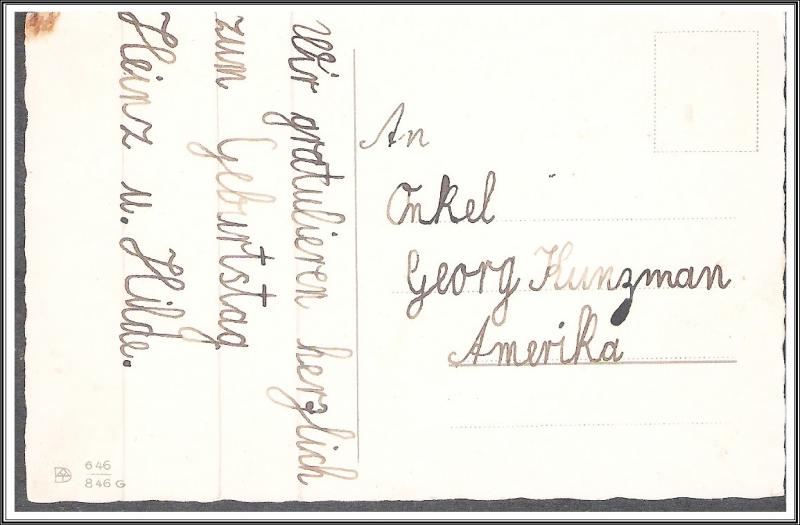 Wir gratulieren herzlich
zum Geburtstag
Heinz u. Hilde.
An
Onkel
Georg Kunzman
Amerika
646
846 G